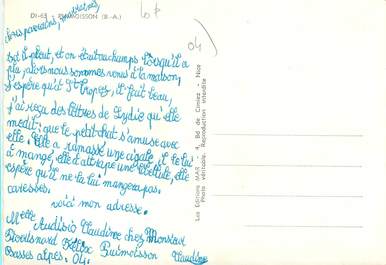 DI-63 PUIMOISSON (B.-A.)
04
Chers parrains, marraines,
soit il pleut, et on était aux champs lorsqu'il a
plu, alors nous sommes venus à la maison,
j'espère qu'à St Tropez, il fait beau,
j'ai reçu des lettres de Lydie qu'elle
me dit: que le petit chat s'amuse avec
elle. Elle a ramassé une cigale, il te l'a
mangé, elle attrape une
espère qu'il ne la lui mangera pas.
caresses.
voici mon adresse.
Melle
Audibio Claudine chez Monsieur
Félix Puimoisson
Basses alpes. 04.
Claudine
Les Editions MAR - 4, Bd de Cimiez - Nice
Photo véritable. Reproduction interdite